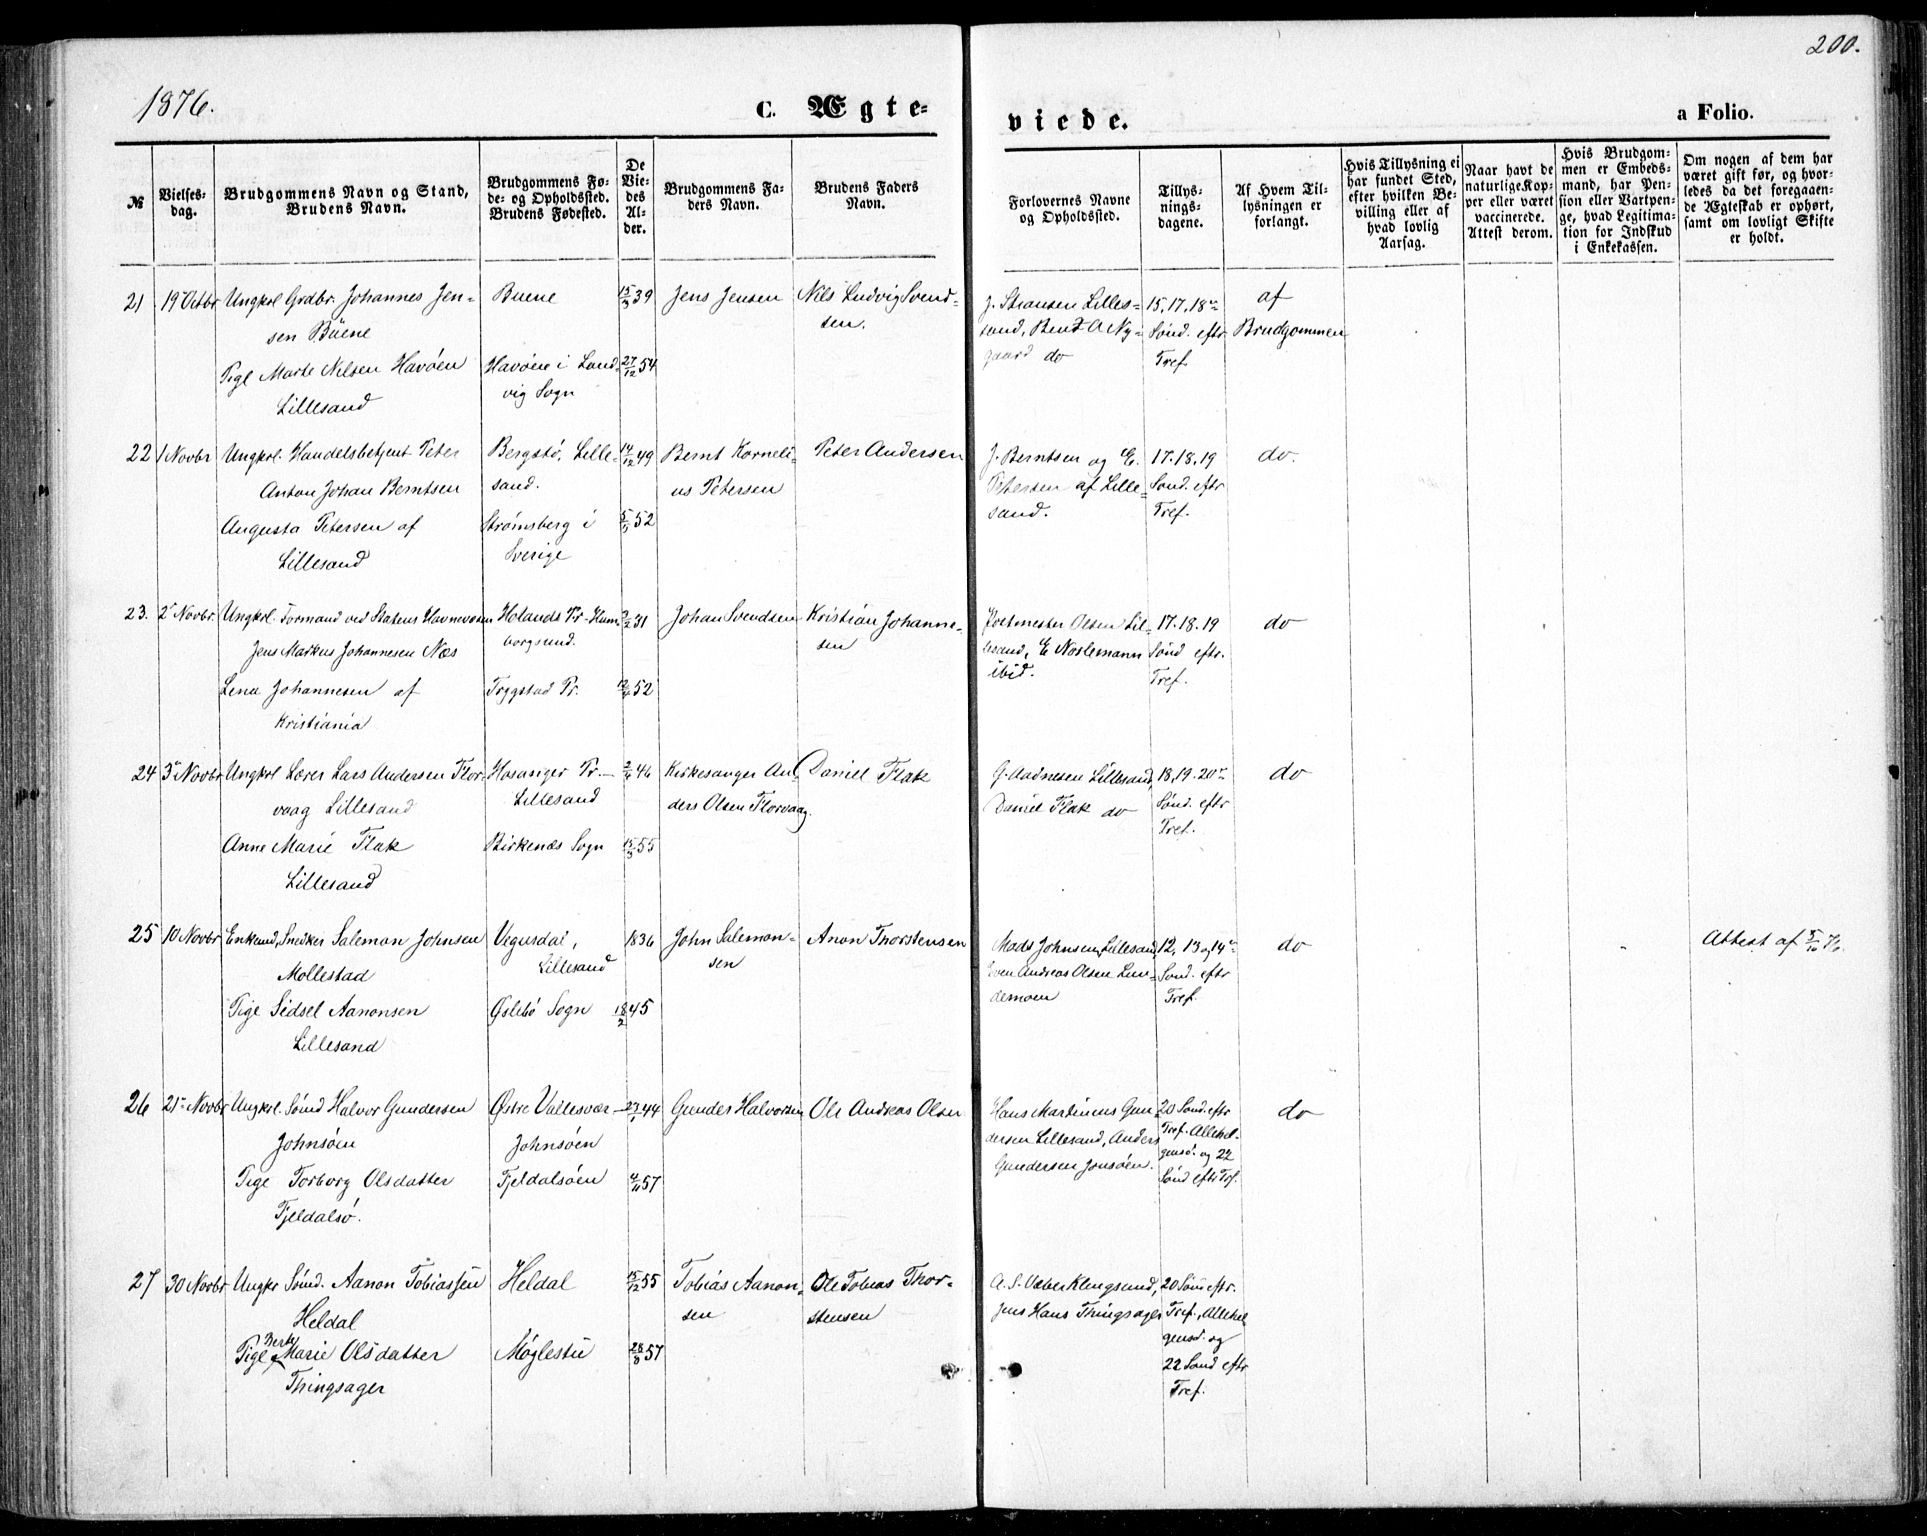 200.
1876.
C. Ægte-
viede.
a Folio.
№
Vielses-
dag.
Brudgommens Navn og Stand,
Brudens Navn.
Brudgommens Fø-
de- og Opholdssted.
Brudens Fødested.
De
Vie-
des
Al-
der.
Brudgommens Fa-
ders Navn.
Brudens Faders
Navn.
Forlovernes Navne
og Opholdssted.
Tillys-
nings-
dagene.
Af Hvem Til-
lysningen er
forlangt.
Hvis Tillysning ei
har fundet Sted,
efter hvilken Be-
villing eller af
hvad lovlig
Aarsag.
Naar havt de
naturlige Kop-
per eller været
vaccinerede.
Attest derom.
Hvis Brudgom-
men er Embeds-
mand, har Pen-
sion eller Vartpen-
ge, hvad Legitima-
tion for Indskud
i Enkekassen.
Om nogen af dem har
været gift før, og hvor-
ledes da det foregaaen-
de Ægteskab er ophørt,
samt om lovligt Skifte
er holdt.
21
19 Octbr
Ungkrl Grdbr. Johannes Jen-
sen Büene
Pige Marte Nilsen Havöen
Lillesand
Buene
Havöen i Land-
vig Sogn
15/3 39
27/12 54
Jens Jensen
Nils Ludvig Svend-
sen.
J. Stransen Lilles-
sand, Bent A Ny-
gaard do
15, 17, 18de
Sönd. eftr
Tref.
af
Brudgommen
22
1 Novbr
Ungkrl. Handelsbetjent Peter
Anton Johan Berntsen
Augusta Petersen af
Lillesand
Bergstö, Lille-
sand.
Strömsberg i
Sverige
14/12 49
52
Bernt Korneli-
us Petersen
Peter Andersen
J. Berntsen og E.
Petersen af Lille-
sand.
17. 18. 19
Sönd. eftr
Tref.
do.
23.
2 Novbr.
Ungkrl. Formand ved Statens Havnevæsen
Jens Markus Johannesen Næs
Lena Johannesen af
Kristiania
Holands Pr - Hum-
borgsund.
Trygstad Pr.
31
52
Johan Svendsen
Kristian Johanne-
sen
Postmester Olsen Lil-
lesand, E Noslemann
ibid.
17. 18. 19
Sönd eftr.
Tref.
do
24
3 Novbr
Ungkrl Lærer Lars Andersen Flor-
vaag Lillesand
Anne Marie Flak
Lillesand
Hosanger Pr. -
Lillesand
Birkenæs Sogn
46
15/3 55
Kirkesanger An-
ders Olsen Florvaag.
Daniel Flak
G. Aadnesen Lillesand,
Daniel Flak do
18, 19. 20de
Sönd. eftr
Tref.
do
25
10 Novbr
Enkemd, Snedker Salemon Johnsen
Mollestad
Pige Sidsel Aanonsen
Lillesand
Vegusdal,
Lillesand
Øslebö Sogn
1836
18/2 45
John Salemon-
sen
Anon Thorstensen
Mads Johnsen, Lillesand,
Even Andreas Olsen Lun-
demoen
12, 13 og 14de
Sönd. eftr
Tref.
do
Attest af 5/10 76.
26
21 Novbr
Ungkrl. Sömd Halvor Gundersen
Johnsöen
Pige Torborg Olsdatter
Fjeldalsö.
Østre Vallesvær -
Johnsöen
Fjeldalsöen
44
57
Gunder Halvorsen
Ole Andreas Olsen
Hans Martinius Gun-
dersen Lillesand, Anders
Gundersen Jonsöen.
20 Sönd. eftr
Tref. Allehel-
gensd. og 22
Sönd eftr Trf.
do
27
30 Novbr
Ungkr Sömd. Aanon Tobiassen
Heldal
Berte
Pige Marie Olsdatter
Thingsager
Heldal
Møglestu
15/12 55
28/8 57
Tobias Aanon-
sen
Ole Tobias Thor-
stensen
A. S. Væber Klingsund,
Jens Hans Thingsager
20 Sönd eftr.
Tref., Allehel
gensd. og
22 Sönd eftr
Tref.